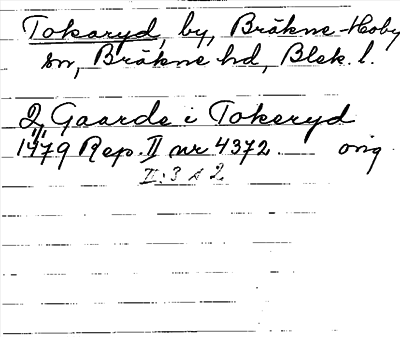 Tokaryd, by, Bräkne-Hoby
sn, Bräkne hd, Blek. l.
2 Gaarde i Tokeryd
1479 Rep. II nr 4372 orig.
II:3 s 2